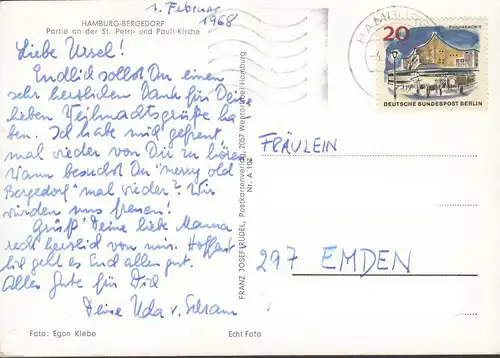 HAMBURG-BERGEDORF
Partie an der St. Petri- und Pauli-Kirche
1. Februar
1968
Liebe Ursel!
Endlich sollst Du einen
sehr herzlichen Dank für Deine
lieben Weihnachtsgrüße ha
ben. Ich habe mich gefreut,
mal wieder von Dir zu hören.
Wann besuchst Du "merry old
Bergedorf" mal wieder? Wir
würden uns freuen!
Grüß' Deine liebe Mama
recht herzlich von mir. Hoffent
lich geht es Euch allen gut.
Alles Gute für Dich
Deine Uda v.
Foto: Egon Klebe
Echt Foto
FRANZ JOSEF RÜDEL, Postkartenverlag, 2057 Wentorf bei Hamburg
Nr. A 102
HAMBURG
20
PHILHARMONIE
DEUTSCHE BUNDESPOST BERLIN
FRÄULEIN
297 EMDEN